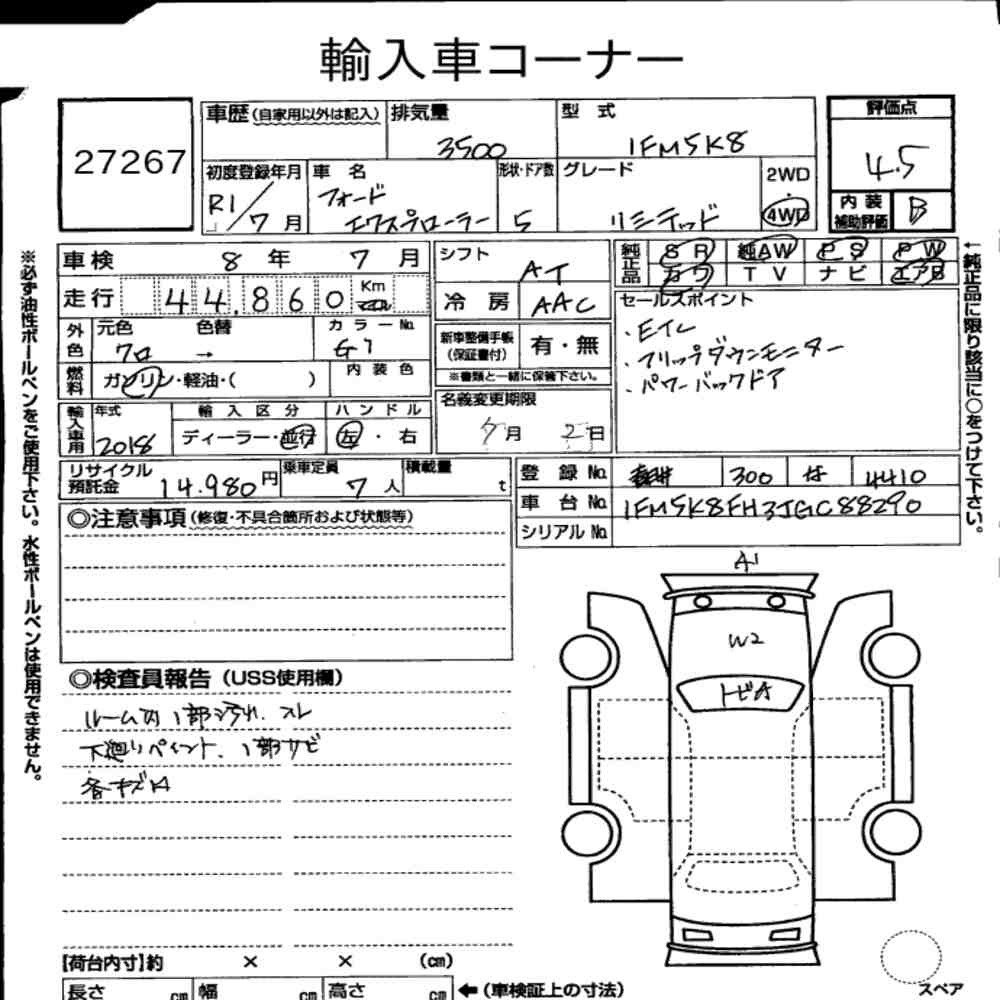 輸入車コーナー
27267
車歴(自家用以外は記入)
排気量
3500
型 式
1FM5K8
評価点
4.5
初度登録年月
R1/7月
車 名
フォード
エクスプローラー
形状・ドア数
5
グレード
リミテッド
2WD
・
4WD
内 装
補助評価
B
車検 8年 7月
走行 44,860 Km
マイル
シフト
AT
冷 房
AAC
純正品
SR 純AW PS PW
カワ TV ナビ エアB
外色
元色
クロ
色替
→
カラーNo.
G1
燃料
ガソリン・軽油・( )
内 装 色
新車整備手帳
(保証書付)
有・無
※書類と一緒に保管下さい。
セールスポイント
・Eイレ
・フリップダウンモニター
・パワーバックドア
輸入車用
年式
2018
輸 入 区 分
ディーラー・並行
ハ ン ド ル
左・右
名義変更期限
月 2日
リサイクル
預託金
14.980円
乗車定員
7人
積載量
t
登 録 No.
300 は 4410
車 台 No.
1FM5K8FH3JGC88290
シリアル No.
◎注意事項(修復・不具合箇所および状態等)
◎検査員報告(USS使用欄)
ルーム内1部汚れ、スレ
下廻りペイント、1部サビ
各キズ凹
A1
W2
トビA
【荷台内寸】約 × × (cm)
長さ cm 幅 cm 高さ cm ←(車検証上の寸法)
スペア
※必ず油性ボールペンをご使用下さい。水性ボールペンは使用できません。
←純正品に限り該当に○をつけて下さい。